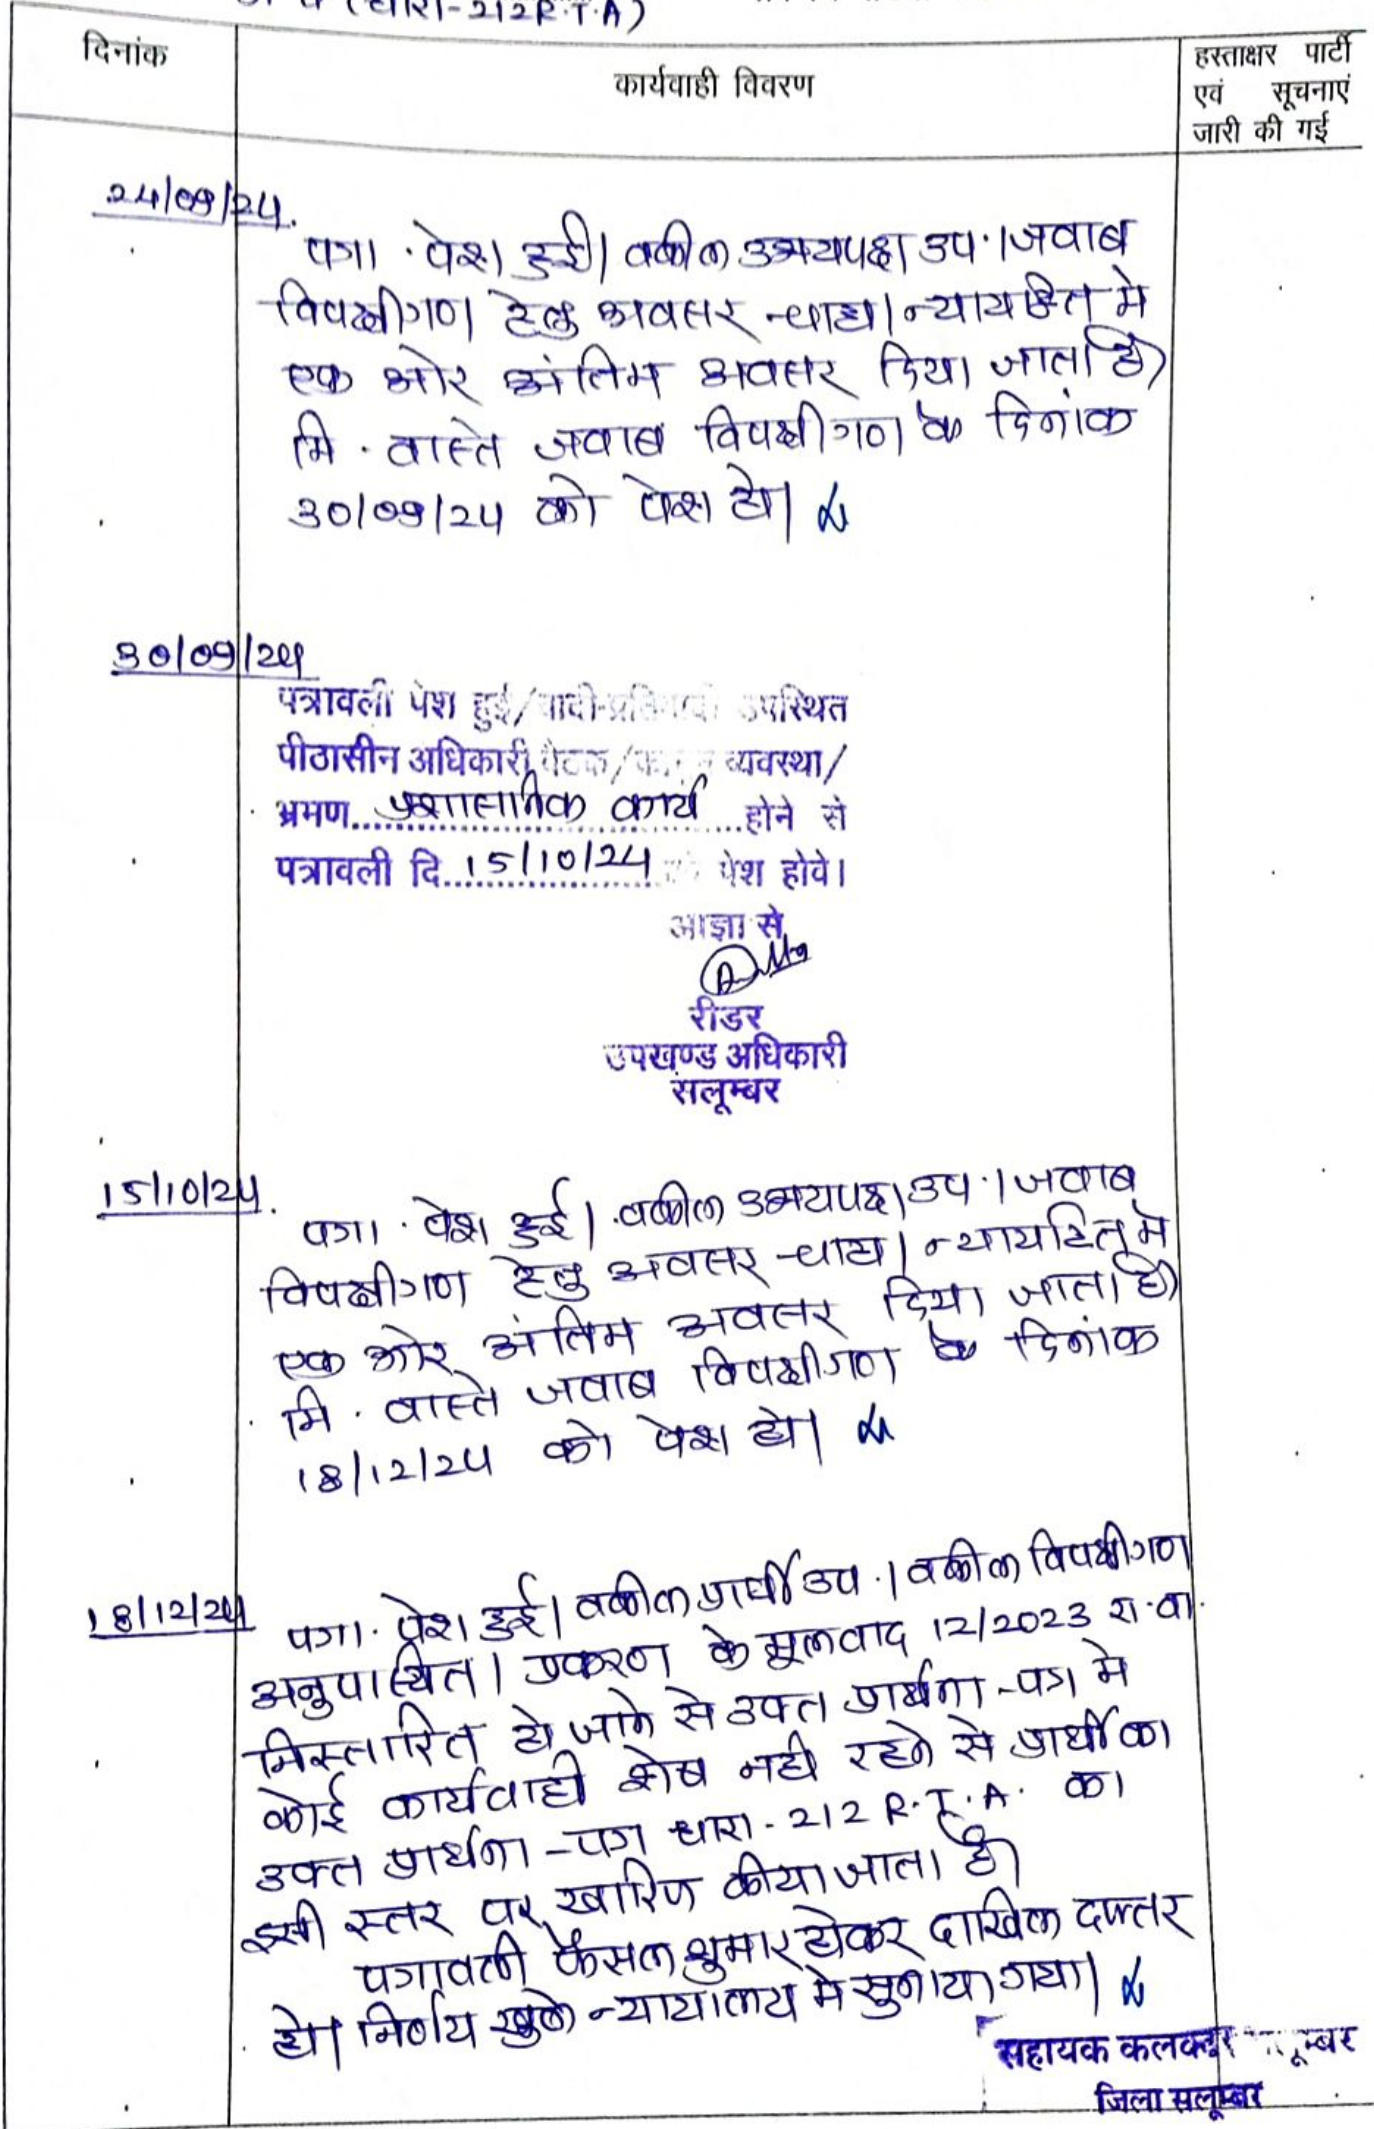 (धारा-212 R.T.A)
दिनांक
कार्यवाही विवरण
हस्ताक्षर पार्टी
एवं सूचनाएं
जारी की गई
24/09/24.
पत्रा. पेश हुई। वकील उभयपक्ष उप.। जवाब
विपक्षीगण हेतु अवसर चाहा। न्यायहित मे
एक ओर अंतिम अवसर दिया जाता है।
मि. वास्ते जवाब विपक्षीगण के दिनांक
30/09/24 को पेश हो।
30/09/24
पत्रावली पेश हुई/वादी-प्रतिवादी उपस्थित
पीठासीन अधिकारी बैठक/कानून व्यवस्था/
भ्रमण प्रशासनिक कार्य होने से
पत्रावली दि. 15/10/24 को पेश होवे।
आज्ञा से
रीडर
उपखण्ड अधिकारी
सलूम्बर
15/10/24.
पत्रा. पेश हुई। वकील उभयपक्ष उप.। जवाब
विपक्षीगण हेतु अवसर चाहा। न्यायहित मे
एक ओर अंतिम अवसर दिया जाता है।
मि. वास्ते जवाब विपक्षीगण के दिनांक
18/12/24 को पेश हो।
18/12/24
पत्रा. पेश हुई। वकील प्रार्थी उप.। वकील विपक्षीगण
अनुपास्थित। प्रकरण के मूलवाद 12/2023 रा.वा.
निस्तारित हो जाने से उक्त प्रार्थना-पत्र मे
कोई कार्यवाही शेष नही रहने से प्रार्थी का
उक्त प्रार्थना-पत्र धारा-212 R.T.A. का
इसी स्तर पर खारिज कीया जाता है।
पत्रावली फैसल शुमार होकर दाखिल दफ्तर
हो। निर्णय खुले न्यायालय मे सुनाया गया।
सहायक कलक्टर सलूम्बर
जिला सलूम्बर